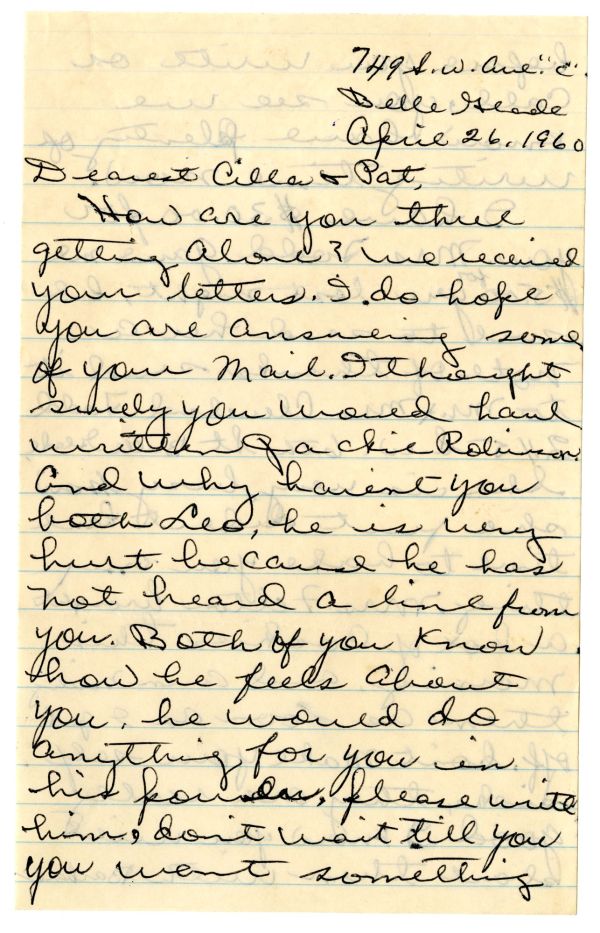 749 S. W. Ave. "C".
Belle Glade
April 26, 1960
Dearest Cilla & Pat,
How are you three
getting alone? we received
your letters. I do hope
you are answering some
of your Mail. I thought
surely you would have
written Jackie Robinson.
And why havent you
both Leo, he is very
hurt because he has
not heard a line from
you. Both of you know
how he feels about
you, he would do
anything for you in
his power, please write
him, don't wait till you
you want something